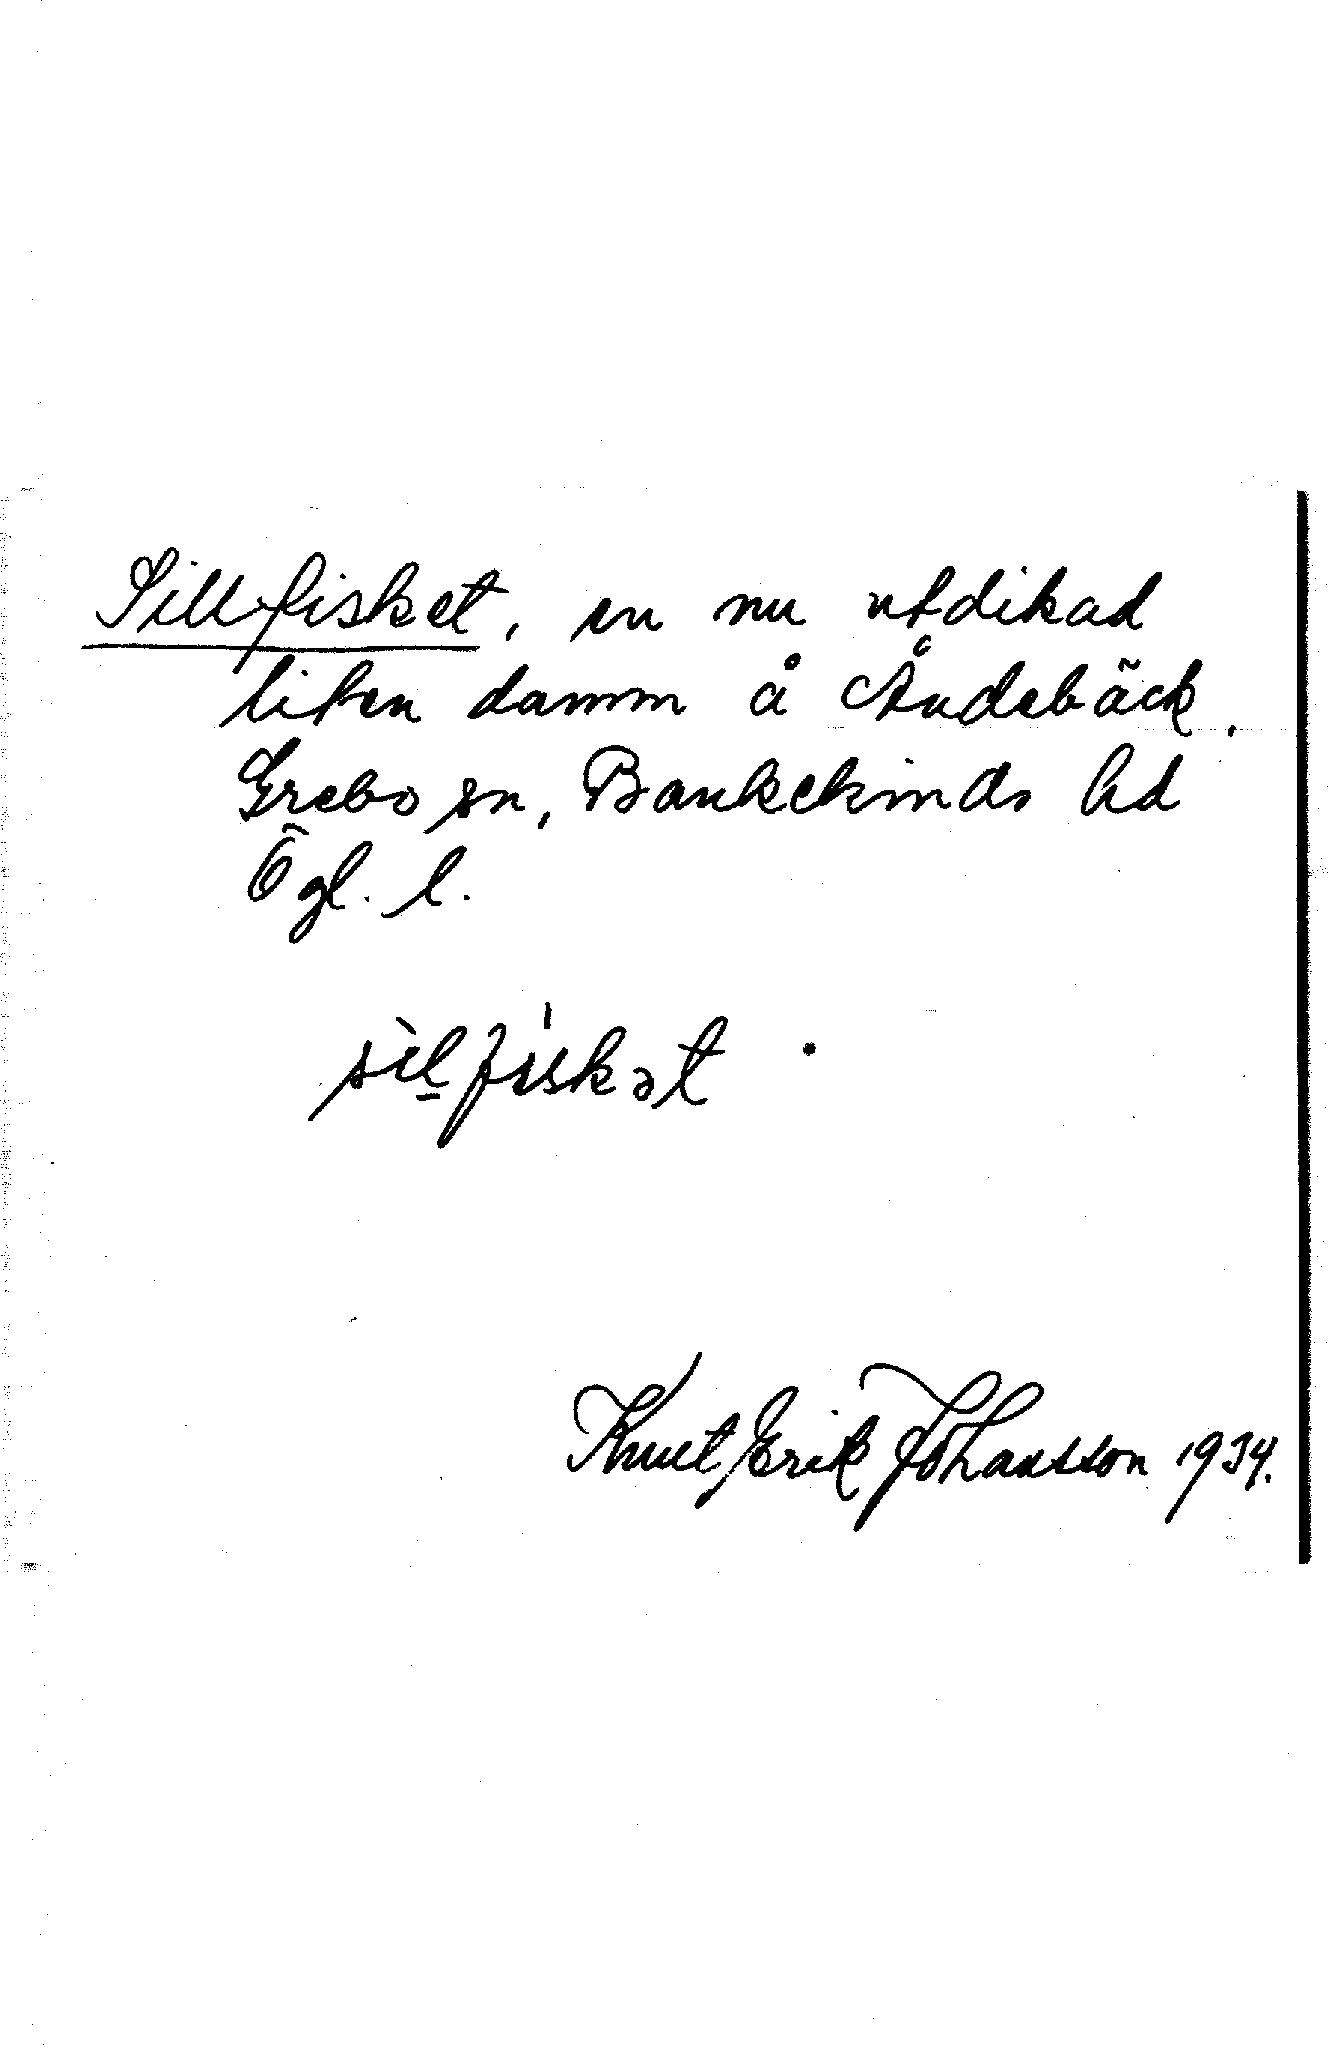 Sillfisket, en nu utdikad
liten damm å Åndebäck.
Grebo sn, Bankekinds hd
Ögl. l.
sìl̠fískət .
Knut Erik Johansson 1934.